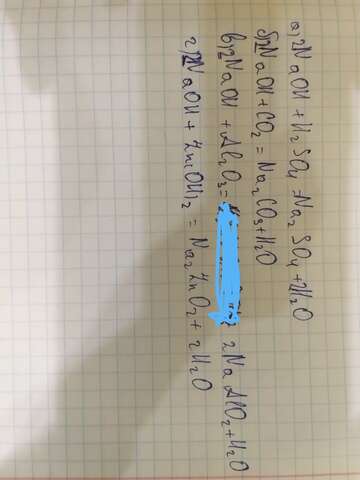 а) 2NaOH + H2SO4 = Na2SO4 + 2H2O
б) 2NaOH + CO2 = Na2CO3 + H2O
в) 2NaOH + Al2O3 = 2NaAlO2 + H2O
г) 2NaOH + Zn(OH)2 = Na2ZnO2 + 2H2O